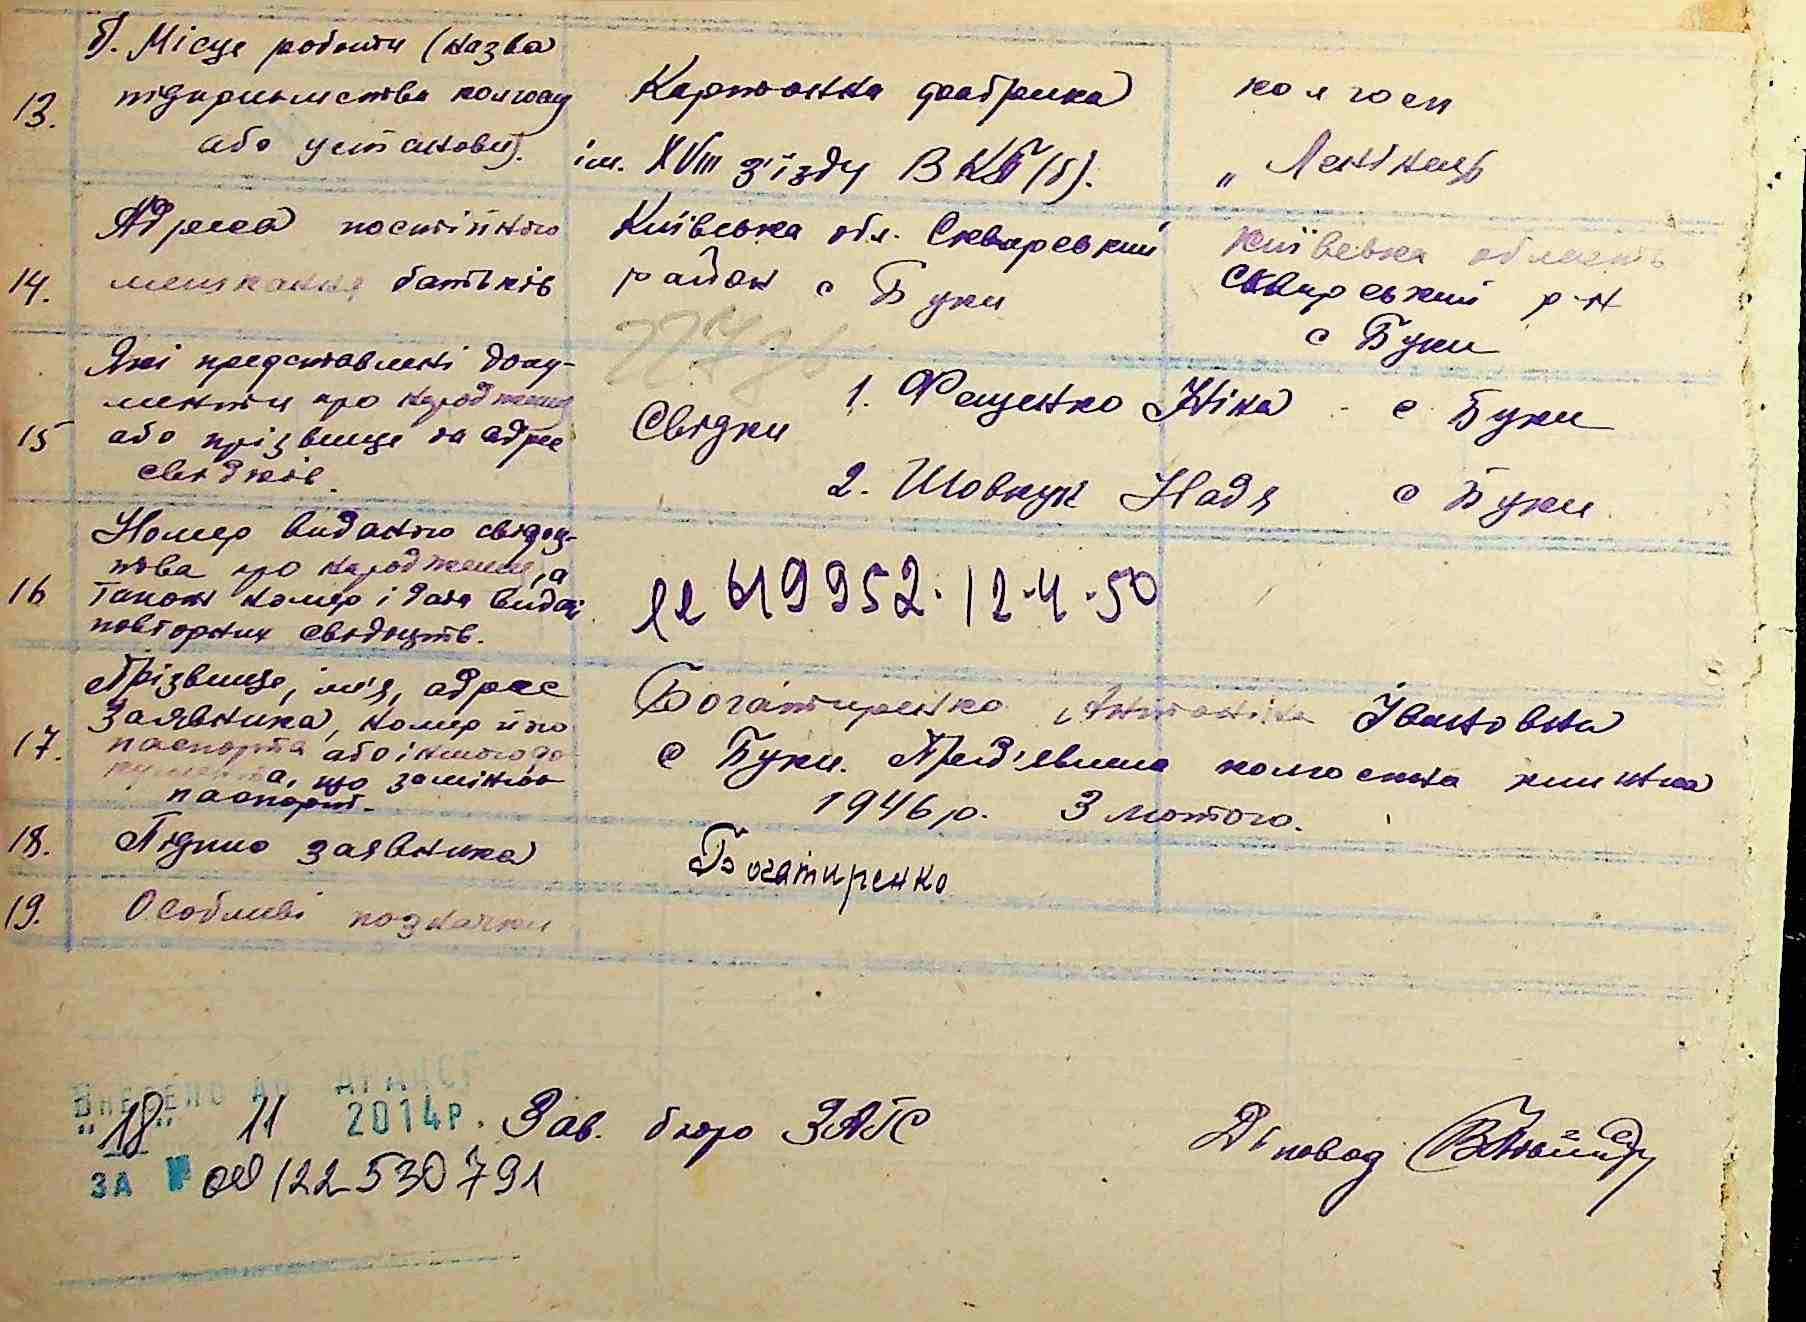 б). Місце роботи (назва
13. підприємства колгосу
або установи).
Картонна фабрика
ім. XVIII з'їзду ВКП(б).
колгосп
„Ленінець
14. Адреса постійного
мешкання батьків
Київська обл. Сквирський
район с Буки
Київська область
Сквирський р-н
с Буки
15 Які представлені доку-
менти про народження
або прізвище та адрес
свідків.
Свідки 1. Фещенко Ніна с Буки
2. Шовкун Надя с Буки
16 Номер виданого свідоц-
тва про народження, а
також номер і дата видачі
повторних свідоцтв.
419952. 12.4.50
17. Прізвище, ім'я, адрес
заявника, номер його
паспорта або іншого до-
кумента, що заміняє
паспорт.
Богатиренко Антоніна Івановна
с Буки. Пред'явила колгоспна книжка
1946 р. 3 лютого.
18. Підпис заявника
Богатиренко
19. Особливі позначки
ВНЕСЕНО ДО ДРАЦСГ
"18" 11 2014р.
ЗА № 00122530791
Зав. бюро ЗАГС
Діловод